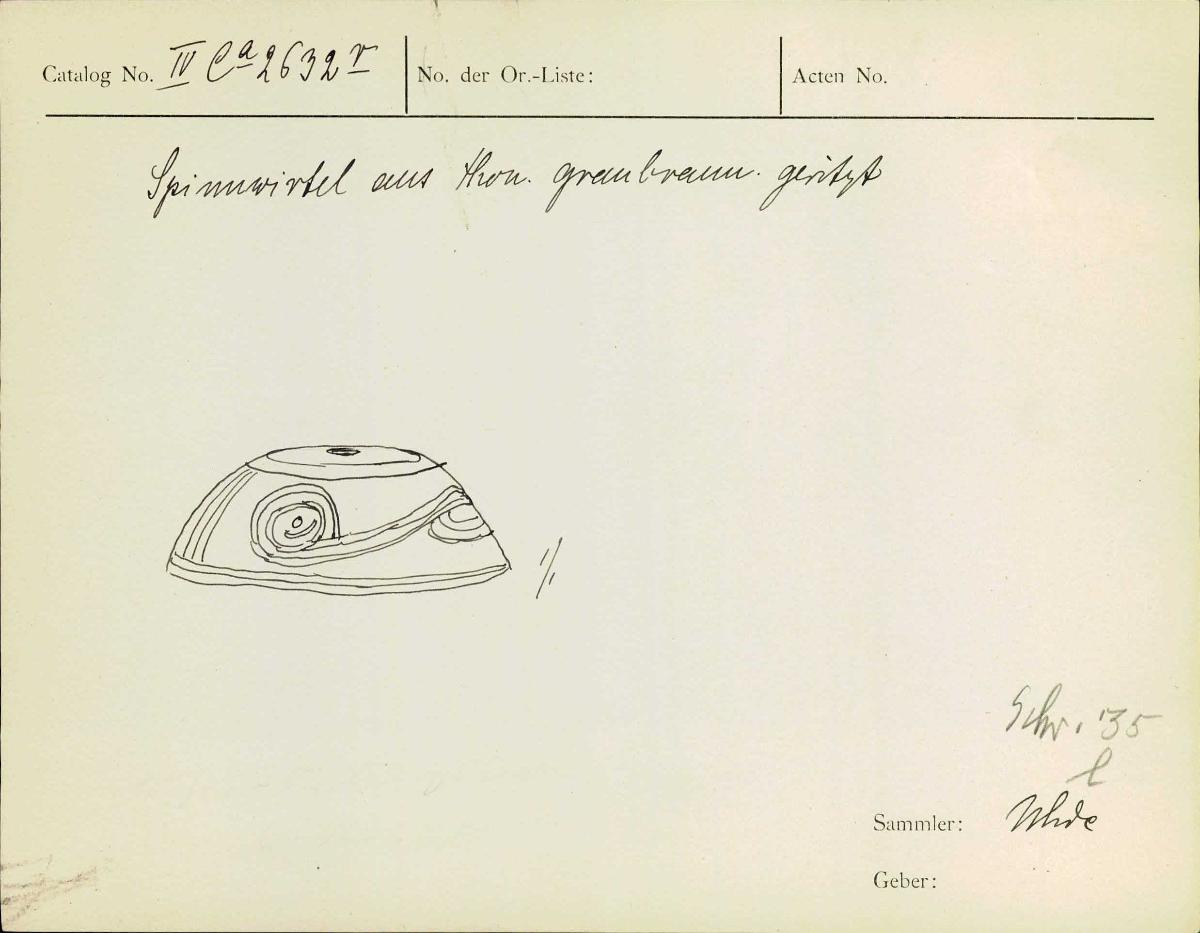 Catalog No. IV Ca 2632 v No. der Or.-Liste: Acten No.
Spinnwirtel aus Thon. graubraun. geritzt
1/1
Schr. '35
l
Sammler: Uhde
Geber: